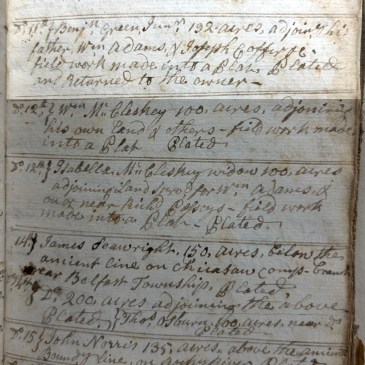 Do. 11th } Benjn. Green, Junr. 132 acres, adjoing. his
father, Wm. Adams, & Joseph
field work made into a Plat. Plated
and Returned to the owner—
Do. 12th } Wm. McCleskey 100 acres, adjoining
his own Land & others - field work made
into a Plat Plated
Do. 12th } Isabella McCleskey widow 100 acres
adjoining Land for Wm. Adams, &
near Richd. - field work
made into a Plat - Plated.
14th } James Seawright. 150, acres, below the
ancient line on Chicasaw Camp - branch
near Belfast Township, Plated
14th } Do. 200 acres adjoining the above
Plated, } Thos. Osburn 100, acres, near Do.
Plated
Do. 15 } John Norris 135, acres, above the ancient
Boundy. line, on Plated